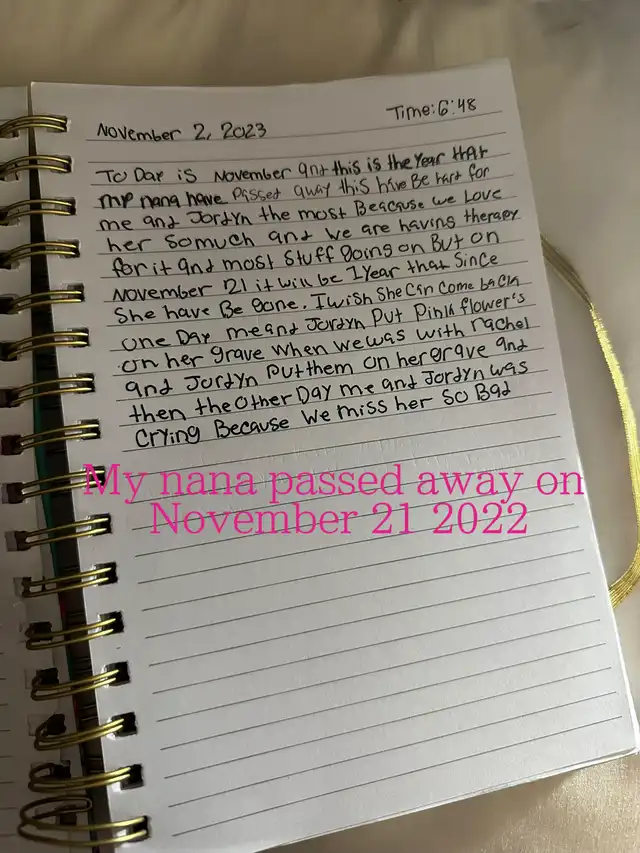 November 2, 2023
Time: 6:48
To Day is November and this is the Year that
my nana have Passed away this have Be hard for
me and Jordyn the most Beacause we Love
her somuch and we are having therapy
for it and most stuff going on But on
November 21 it will be 1 Year that Since
She have Be gone. I wish She Can Come back
one Day me and Jordyn Put Pink flower's
on her grave when we was with rachel
and Jordyn Put them on her grave and
then the other Day me and Jordyn was
Crying Because We miss her So Bad
My nana passed away on
November 21 2022